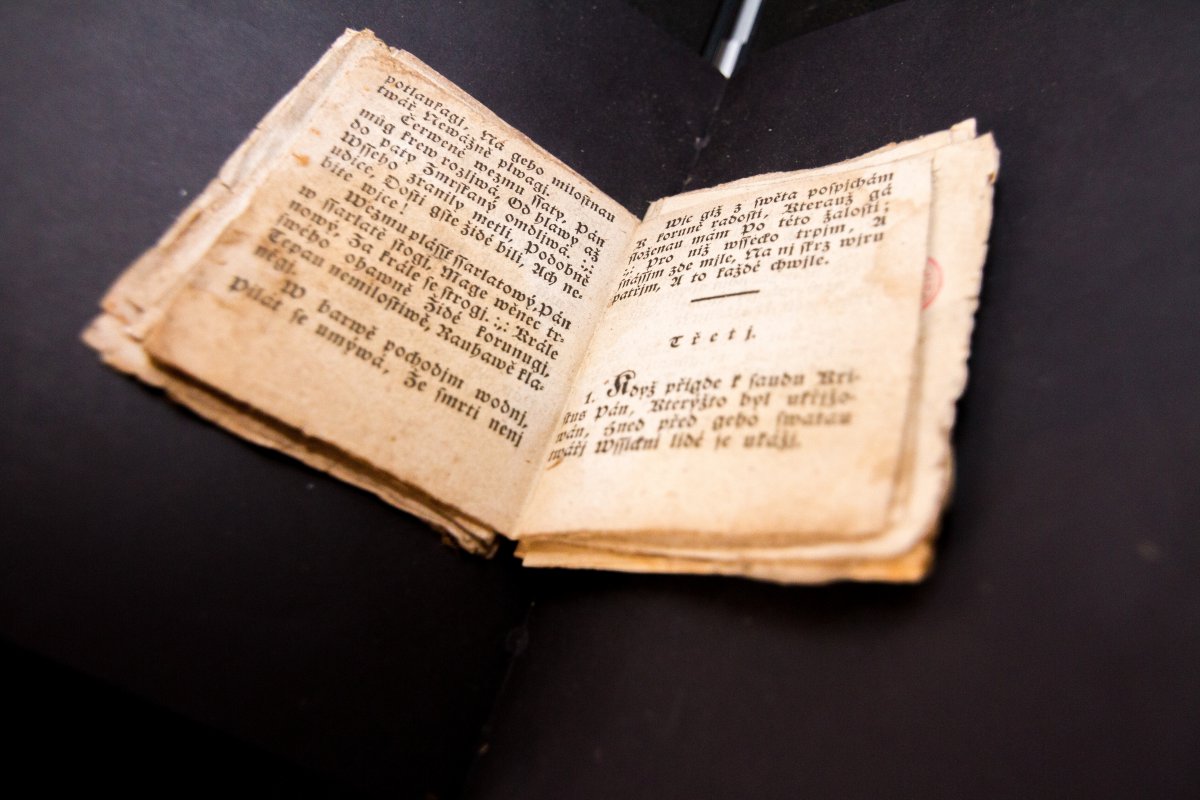 potlaukagi, Na geho miloſtnau
twář Newážně plwagi.
Čerwené wezmu ſſaty, Pán
můg krew rozljwá, Od hlawy až
do paty Zmrſkaný omdljwá. .;:
Wſſeho zranily metli, Podobně
udice, Doſti gſte židé bili, Ach ne-
bite wjce!
Wezmu pláſſt ſſarlatowý, Pán
w ſſarlatě ſtogi, Mage wěnec tr-
nowý, Za krále ſe ſtrogi. .;: Krále
ſwého ohawně Židé korunugi,
Tepau nemiloſtiwě, Rauhawě kla-
něgi.
W barwě pochodjm wodnj,
Pilát ſe umýwá, Že ſmrti nenj
Wic giž z ſwěta poſpjchám
K koruně radoſti, Kterauž gá
ſloženau mám Po této žaloſti;
.;: Pro niž wſſecko trpjm, A
ſnáſſjm zde mile, Na nj ſkrz wjru
patřjm, A to každé chwjle.
Třetj.
1. Když přigde k ſaudu Kri-
ſtus Pán, Kterýžto byl ukřižo-
wán, Hned před geho ſwatau
twářj Wſſickni lidé ſe ukáži.